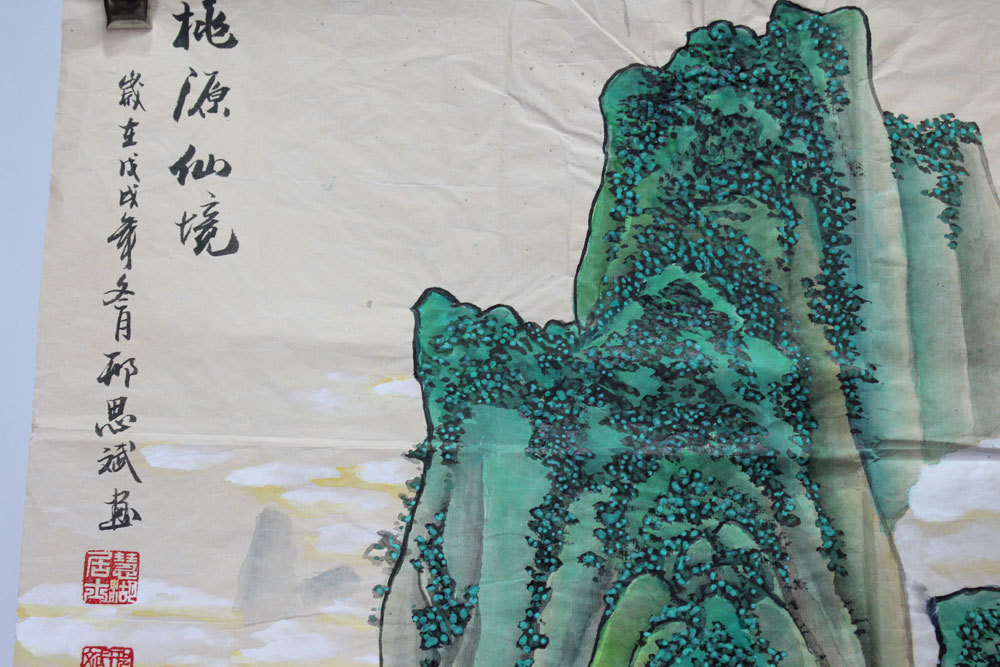 桃源仙境
歲在戊戌年冬月邢思斌畫